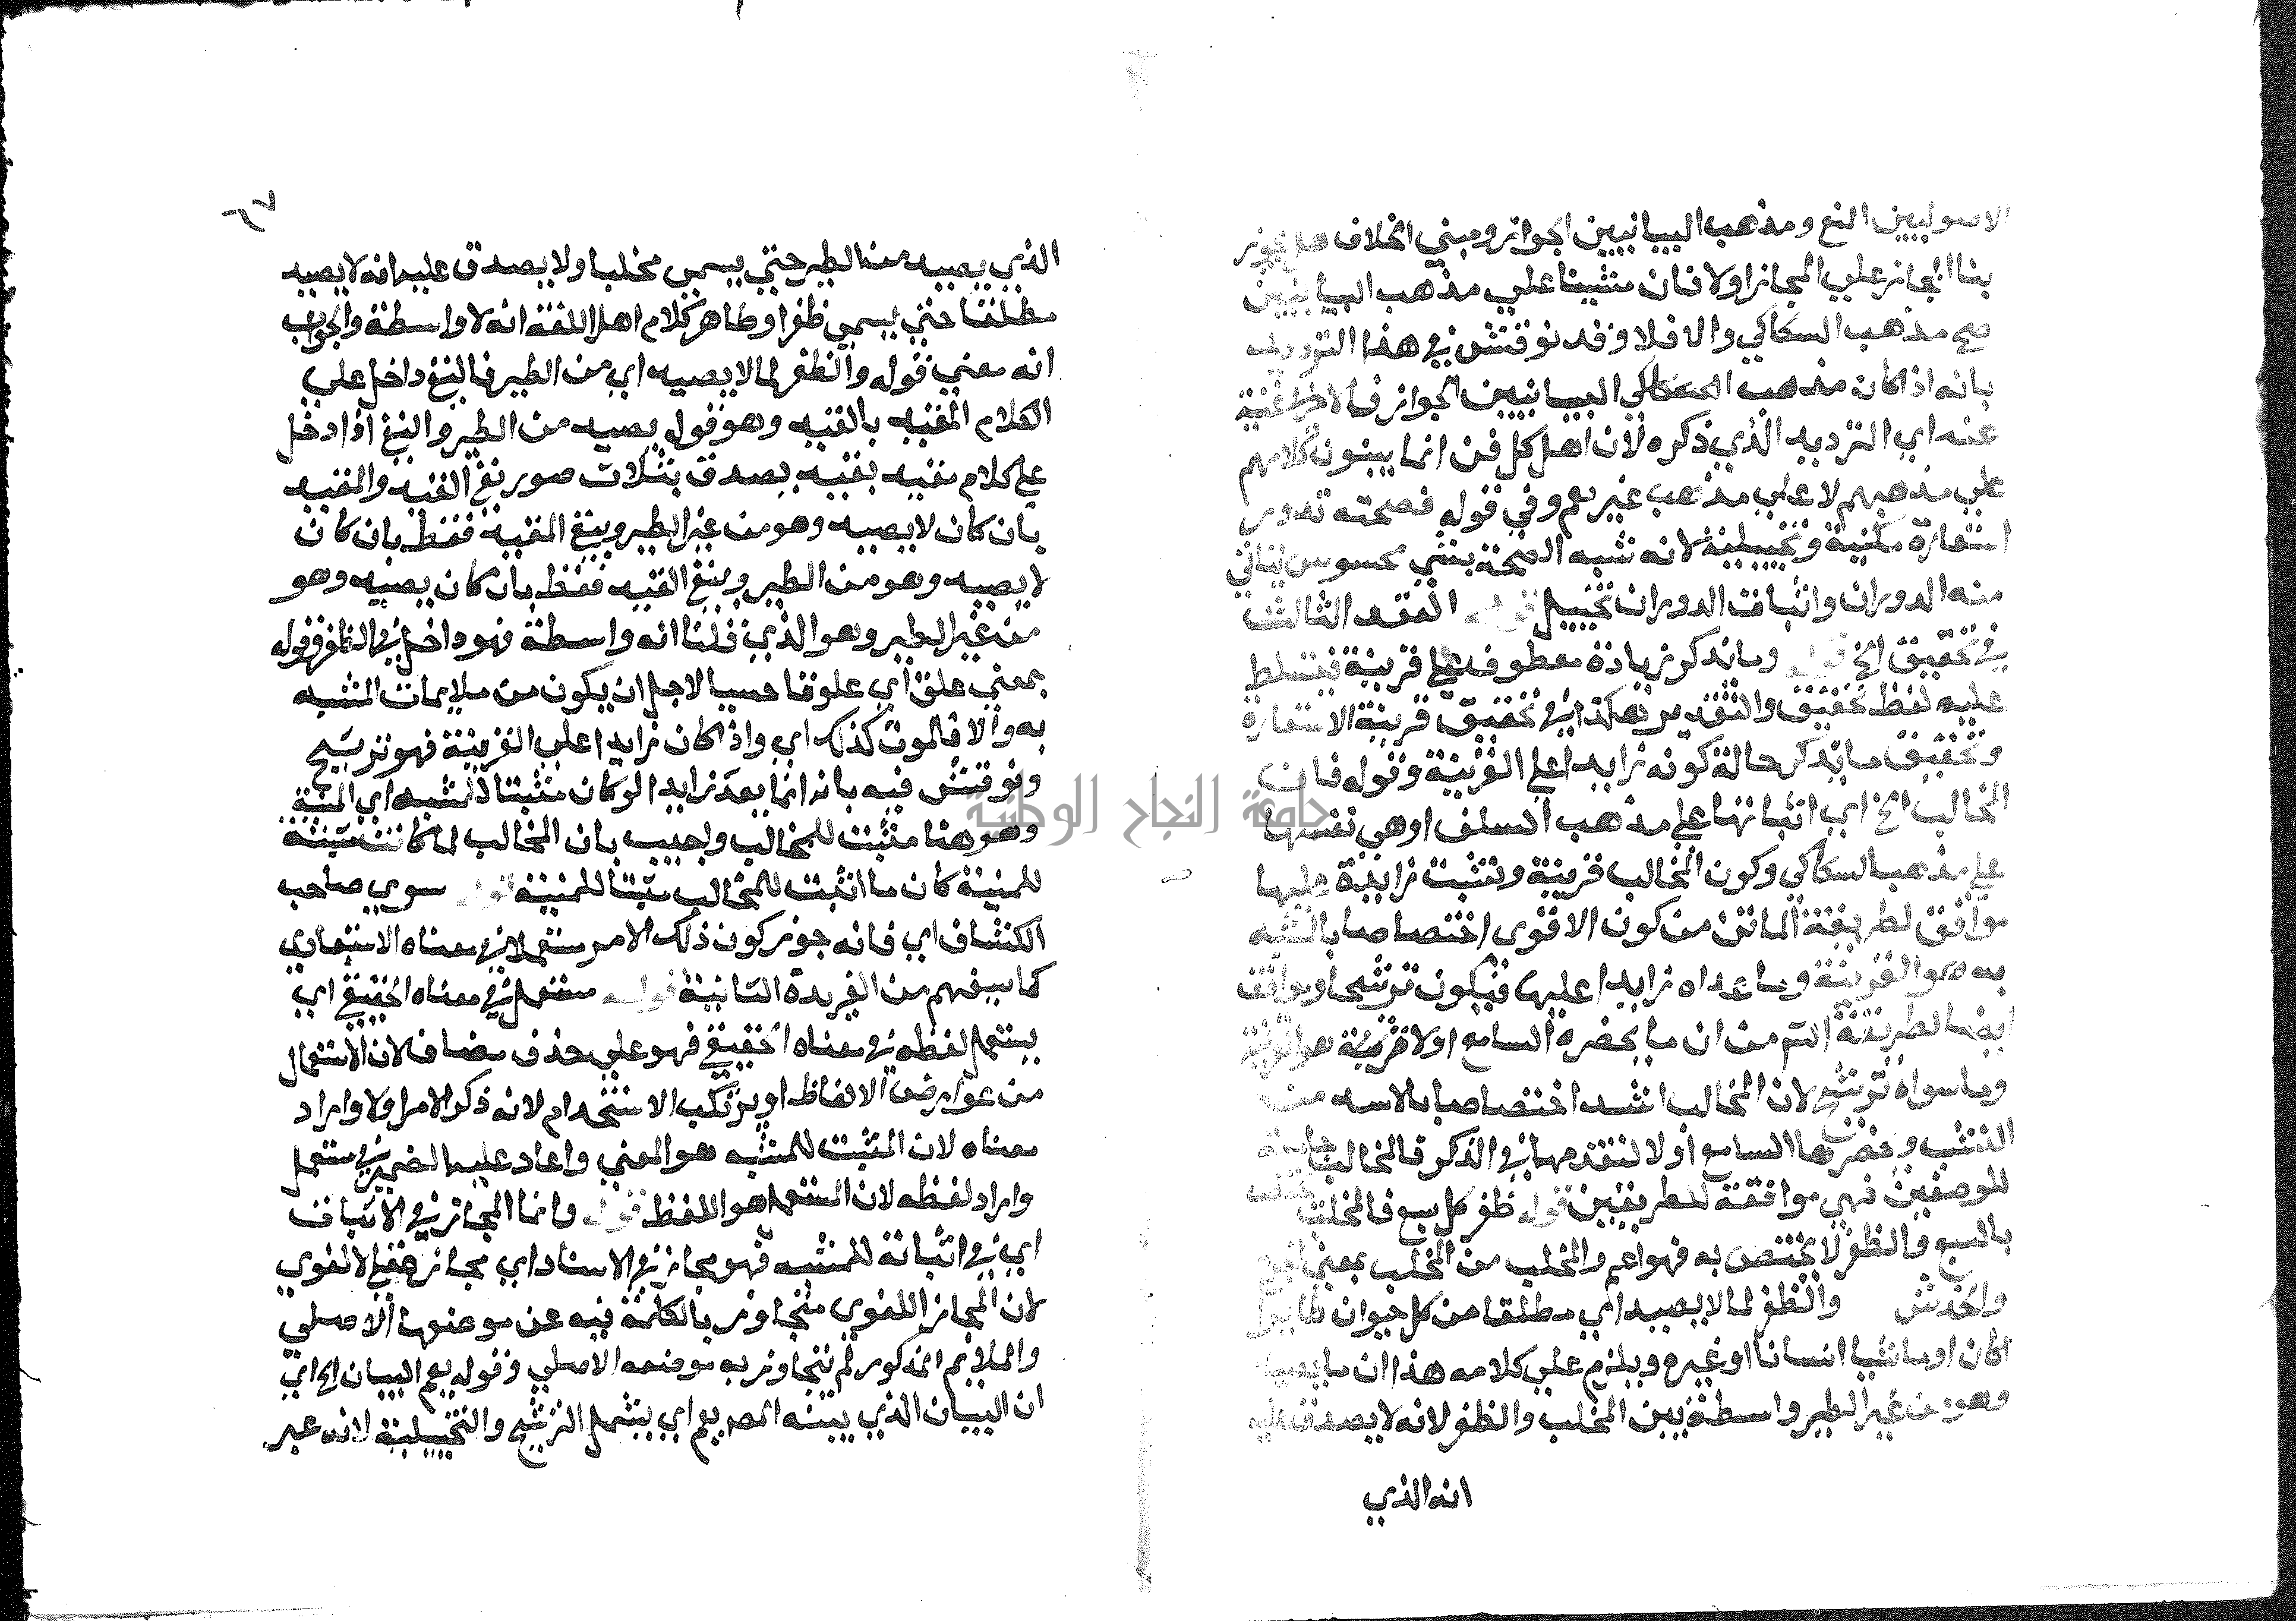 الاصوليين المنع ومذهب البيانيين الجواز ومبني الخلاف هل يجوز
بنا المجاز علي المجاز اولا فان مشينا علي مذهب البيانيين
صح مذهب السكاكي والا فلا وقد نوقش في هذا الترديد
بانه اذا كان مذهب السكاكي البيانيين الجواز فلا
عنه اي الترديد الذي ذكره لان اهل كل فن انما يبنون كلامهم
علي مذهبهم لا علي مذهب غيرهم وفي قوله فصحته تدور
استعارة مكنية وتخييلية لانه شبه الصحة بشي محسوس يتاتي
منه الدوران واثبات الدوران تخييل قوله العقد الثالث
في تحقيق الخ قوله وما يذكر زيادة معطوف علي قرينة فيتسلط
عليه لفظ تحقيق والتقدير هكذا في تحقيق قرينة الاستعارة
وتحقيق ما يذكر حالة كونه زايدا علي القرينة وقوله فان
المخالب الخ اي اثباتها علي مذهب السلف او هي نفسها
علي مذهب السكاكي وكون المخالب قرينة ونشبت زايدة عليها
موافق لطريقة الماتن من كون الاقوي اختصاصا بالمشبه
به هو القرينة وما عداه زايدا عليها فيكون ترشيحا وموافق
ايضا لطريقة الشم من ان ما يحضره السامع اولا قرينة هو القرينة
وما سواه ترشيح لان المخالب اشد اختصاصا بالاسد من
النشب و السامع اولا لتقدمها في الذكر فالمخالب
للوصفين فهي موافقة للطريقين قوله ظفر كل سبع فالمخلب
بالسبع والظفر لا يختص به فهو اعم والمخلب من الخلب بمعني
والخدش والظفر لما لا يصيد اي مطلقا من كل حيوان طايرا
كان او ماشيا انسانا او غيره ويلزم علي كلامه هذا ان ما يصيد
وهو من غير الطير واسطة بين المخلب والظفر لانه لا يصدق عليه
انه الذي
٦٧
الذي يصيد من الطير حتي يسمي مخلبا ولا يصدق عليه انه لا يصيد
مطلقا حتي يسمي ظفرا وظاهر كلام اهل اللغة انه لا واسطة والجواب
انه معني قوله والظفر لما لا يصيد اي من الطير فالنفي داخل علي
الكلام المقيد بالقيد وهو قوله يصيد من الطير والنفي اذا دخل
علي كلام مقيد بقيد يصدق بثلاث صور نفي القيد والمقيد
بان كان لا يصيد وهو من غير الطير وبنفي المقيد فقط بان كان
لا يصيد وهو من الطير وبنفي القيد فقط بان كان يصيد وهو
من غير الطير وهو الذي قلنا انه واسطة فهو داخل في الظفر قوله
بمعني علق اي علوقا حسيا لاجل ان يكون من ملايمات المشبه
به والا فالموت كذلك اي واذا كان زايدا علي القرينة فهو ترشيح
ونوقش فيه بانه انما يعد زايدا لو كان مثبتا للمشبه اي المنية
وهو هنا مثبت للمخالب واجيب بان المخالب لما كانت مثبتة
للمنية كان ما اثبت للمخالب مثبتا للمنية قوله سوي صاحب
الكشاف اي فانه جوز كون ذلك الامر مستعملا في معناه الاستعاري
كما سيفهم من الفريدة الثانية قوله مستعمل في معناه الحقيقي اي
يستعمل لفظه في معناه الحقيقي فهو علي حذف مضاف لان الاستعمال
من عوارض الالفاظ او يرتكب الاستخدام لانه ذكر الامر اولا واراد
معناه لان المثبت للمشبه هو المعني واعاد عليه الضمير في مستعمل
واراد لفظه لان المستعمل هو اللفظ قوله وانما المجاز في الاثبات
اي في اثباته للمشبه فهو مجاز في الاسناد اي مجاز عقلي لا لغوي
لان المجاز اللغوي متجاوز بالكلمة فيه عن موضوعها الاصلي
والملايم المذكور لم يتجاوز به موضعه الاصلي وقوله يعم البيان الخ اي
ان البيان الذي بينه المص يعم اي يشمل الترشيح والتخييلية لانه عبر
جامعة النجاح الوطنية